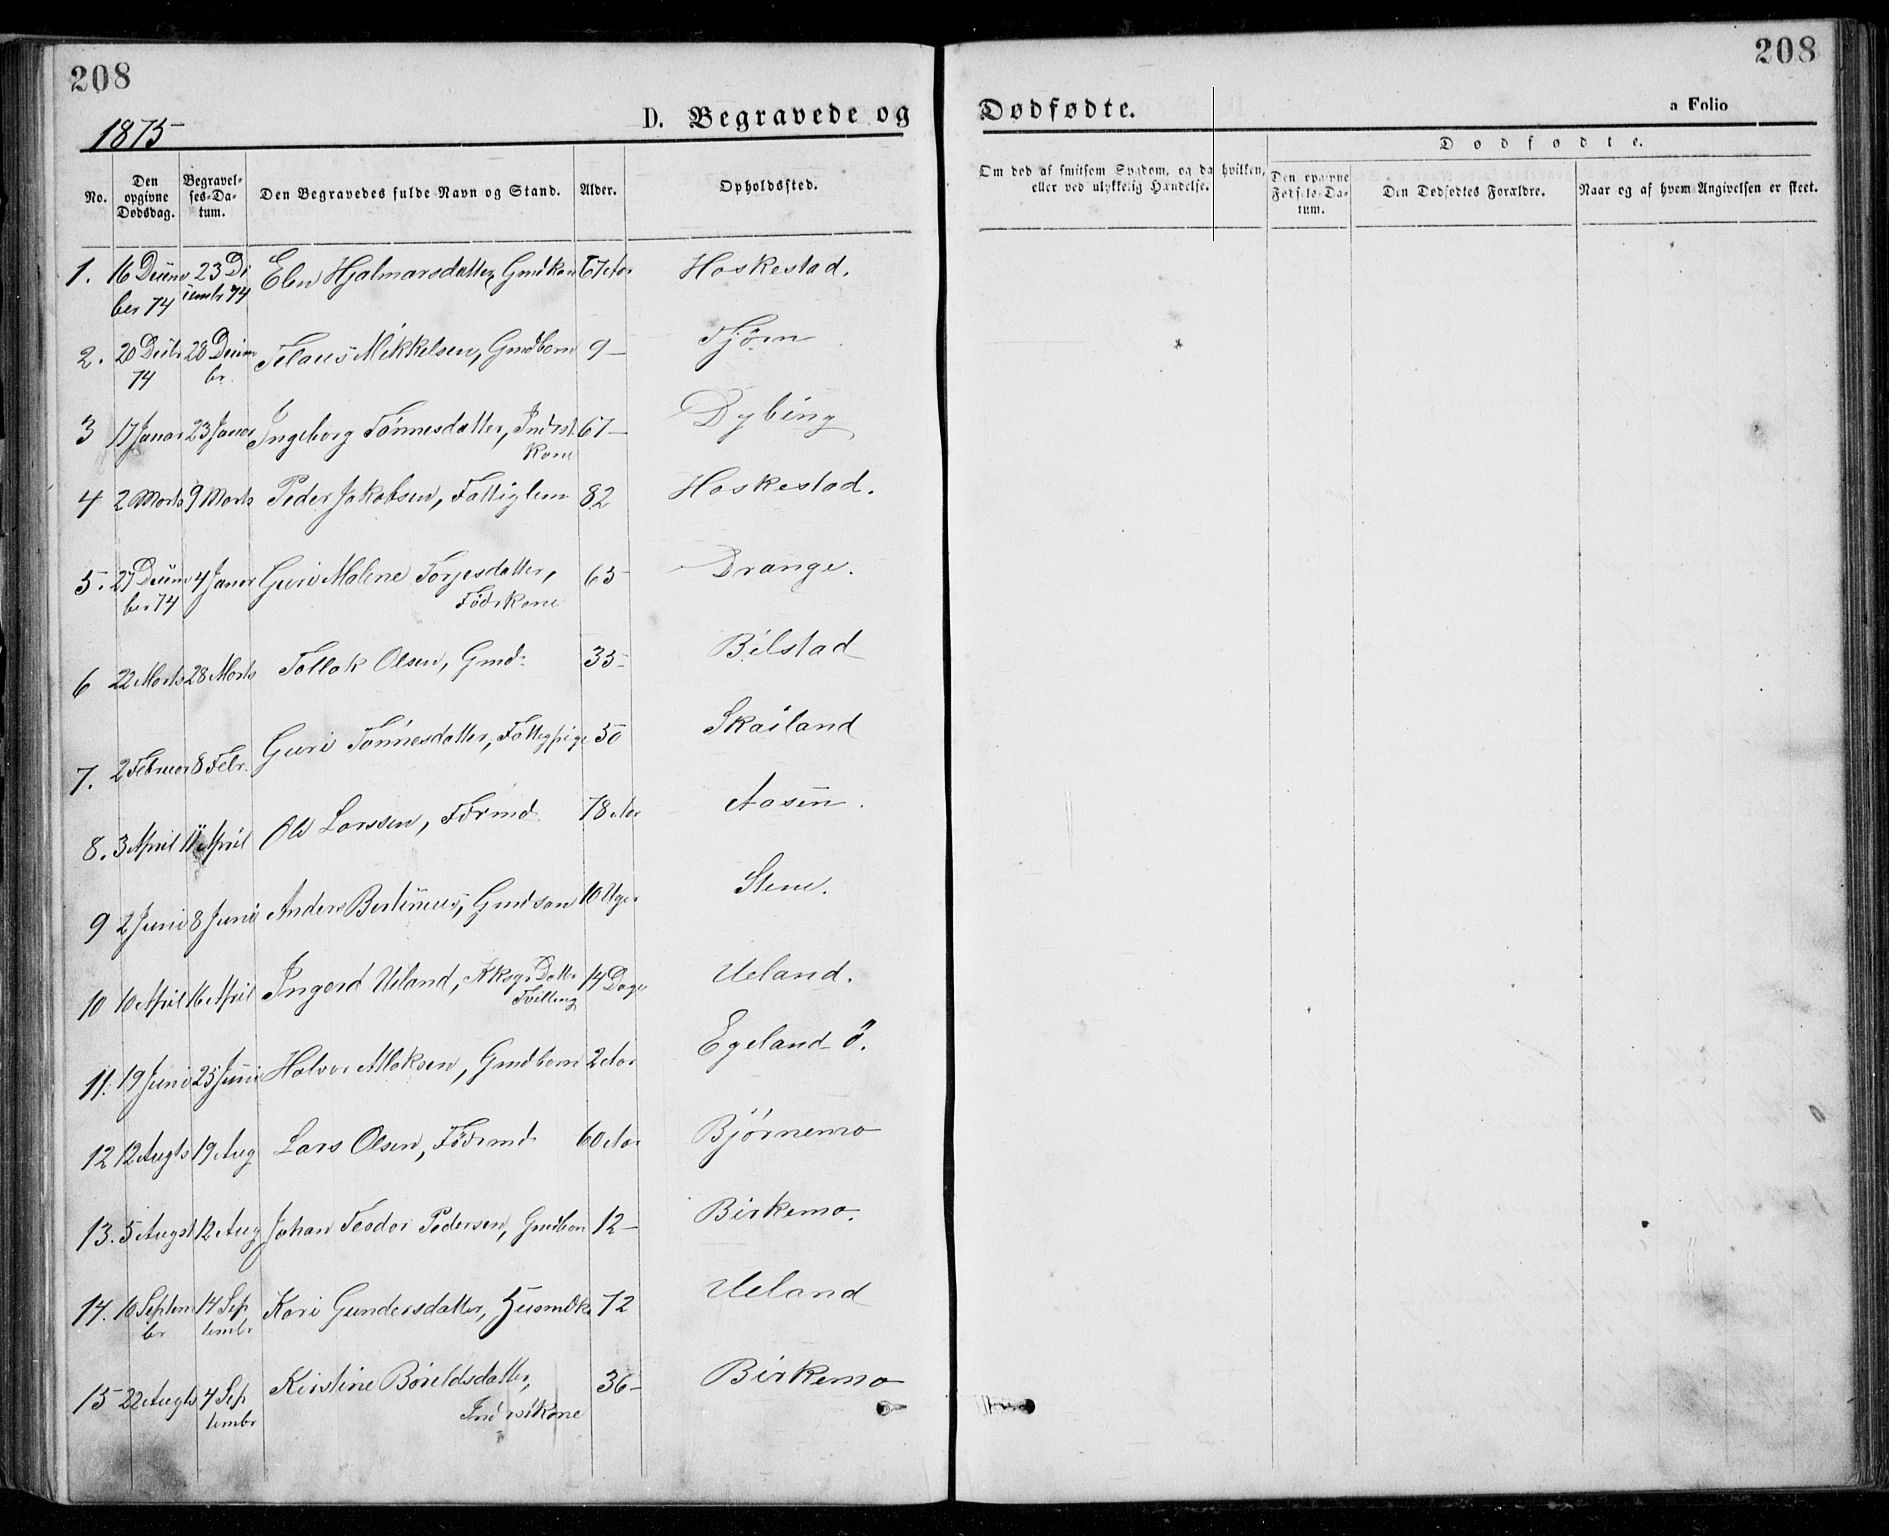 208
208
1875
D. Begravede og Dødfødte.
a Folio
No.
Den opgivne Dødsdag.
Begravelses-Datum.
Den Begravedes fulde Navn og Stand.
Alder.
Opholdssted.
Om død af smitsom Sygdom, og da hvilken, eller ved ulykkelig Hændelse.
Dødfødte.
Den opgivne Fødsels-Datum.
Den Dødfødtes Forældre.
Naar og af hvem Angivelsen er skeet.
1. 16 Decem 23 De Elen Hjalmarsdatter, Gmdkon 67 Aar Haskestad.
ber 74 cembr 74
2. 20 Decbr 28 Decem Mikkelsen, Gmdbarn 9 — Tjørn
74 br.
3 17 Januar 23 Januar Ingeborg Tønnesdatter, Inderst 67 — Dybing
Kone
4 2 Marts 9 Marts Peder Jakobsen, Fattiglem 82 Haskestad.
5. 27 Decem 4 Januar Guri Malene Torjesdatter, 65 Drange.
ber 74 Födrkone
6 22 Marts 28 Marts Tollak Olsen, Gmd. 35 — Bilstad
7. 2 Februar 8 Febr. Guri Tönnesdatter, Fattigpige 50 Skailand
8. 3 April 11 April Ole Larssen, Fdrmd. 78 Aar Aasen.
9 2 Juni 8 Juni Anders Bertinius, Gmdsøn 10 Uger Stene.
10 10 April 16 April Ingerd Ueland, Kksgr Dattr 14 Dage Ueland.
Tvilling
11. 19 Juni 25 Juni Halvor Atlaksen, Gmdbarn 2 Aar Egeland Ö.
12 12 Augts 19 Aug Lars Olsen, Födrmd. 60 Aar Bjørnemo
13. 5 Augst 12 Aug Johan Teodor Pedersen, Gmdbarn 12 — Birkemo.
14. 10 Septem 14 Sep Kari Gundersdatter, Husmdk. 72 Ueland
br tembr
15 22 Augts 4 Sep Kirstine Böreldsdatter, 36 — Birkemo
tembr Inderstkone